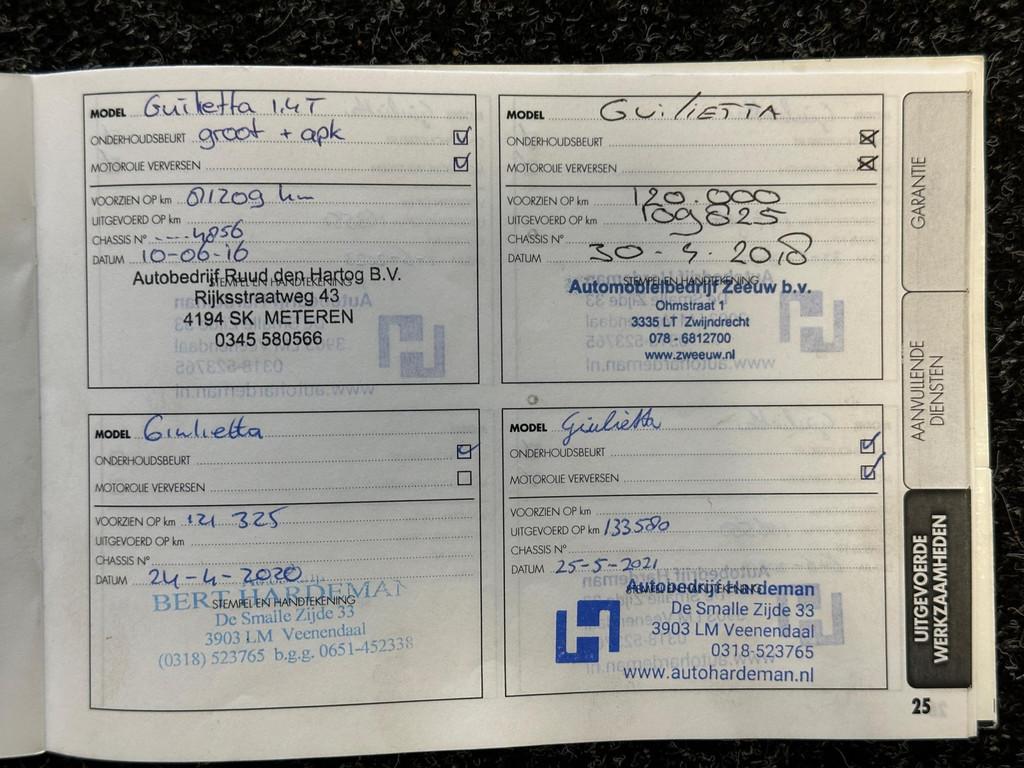 MODEL Guiletta 1.4T
ONDERHOUDSBEURT groot + apk
MOTOROLIE VERVERSEN
VOORZIEN OP km 81209 km
UITGEVOERD OP km
CHASSIS Nº ----4856
DATUM 10-06-16
STEMPEL EN HANDTEKENING
Autobedrijf Ruud den Hartog B.V.
Rijksstraatweg 43
4194 SK METEREN
0345 580566
MODEL GUILIETTA
ONDERHOUDSBEURT
MOTOROLIE VERVERSEN
VOORZIEN OP km 120.000
UITGEVOERD OP km 109825
CHASSIS Nº
DATUM 30-4-2018
STEMPEL EN HANDTEKENING
Automobielbedrijf Zeeuw b.v.
Ohmstraat 1
3335 LT Zwijndrecht
078 - 6812700
www.zweeuw.nl
MODEL Giulietta
ONDERHOUDSBEURT
MOTOROLIE VERVERSEN
VOORZIEN OP km 121 325
UITGEVOERD OP km
CHASSIS Nº
DATUM 24-4-2020
STEMPEL EN HANDTEKENING
BERT HARDEMAN
De Smalle Zijde 33
3903 LM Veenendaal
(0318) 523765 b.g.g. 0651-452338
MODEL Giulietta
ONDERHOUDSBEURT
MOTOROLIE VERVERSEN
VOORZIEN OP km
UITGEVOERD OP km 133580
CHASSIS Nº
DATUM 25-5-2021
STEMPEL EN HANDTEKENING
Autobedrijf Hardeman
De Smalle Zijde 33
3903 LM Veenendaal
0318-523765
www.autohardeman.nl
GARANTIE
AANVULLENDE
DIENSTEN
UITGEVOERDE
WERKZAAMHEDEN
25